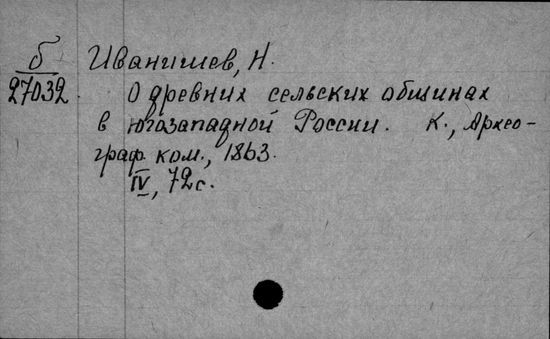 б Иванишев, Н.
27032 О древних сельских общинах
в югозападной России. К., Архео-
граф. ком., 1863.
IV, 72 с.